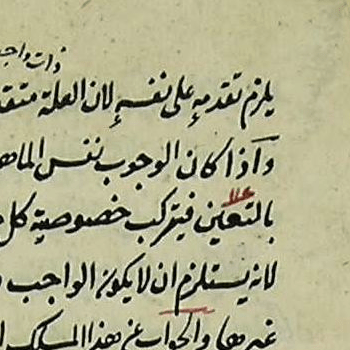 ذات واجب
يلزم تقدمه على نفسه لان العلة متقد
واذا كان الوجوب نفس الماهـ
بالتعين فيتركب خصوصية كل
لانه يستلزم ان لا يكون الواجب
غيرها والجواب عن هذا المسلك